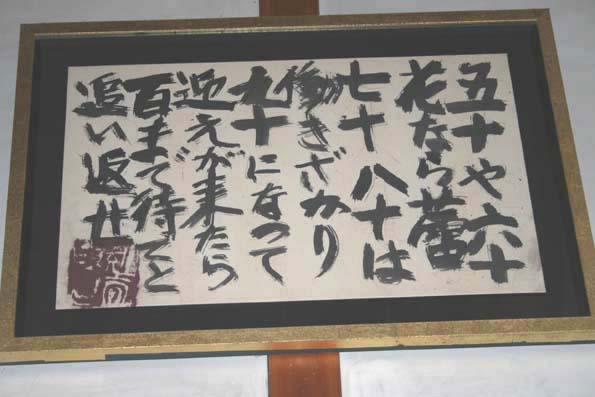 五十や六十
花なら蕾
七十八十は
働きざかり
九十になって
迎えが来たら
百まで待てと
追い返せ